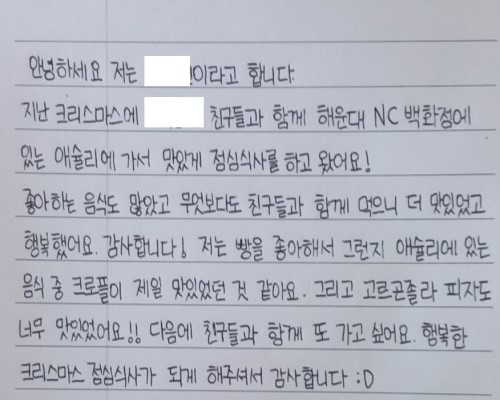 안녕하세요 저는 이라고 합니다.
지난 크리스마스에 친구들과 함께 해운대 NC 백화점에
있는 애슐리에 가서 맛있게 점심식사를 하고 왔어요!
좋아하는 음식도 많았고 무엇보다도 친구들과 함께 먹으니 더 맛있었고
행복했어요. 감사합니다! 저는 빵을 좋아해서 그런지 애슐리에 있는
음식 중 크로플이 제일 맛있었던 것 같아요. 그리고 고르곤졸라 피자도
너무 맛있었어요!! 다음에 친구들과 함께 또 가고 싶어요. 행복한
크리스마스 점심식사가 되게 해주셔서 감사합니다 :D